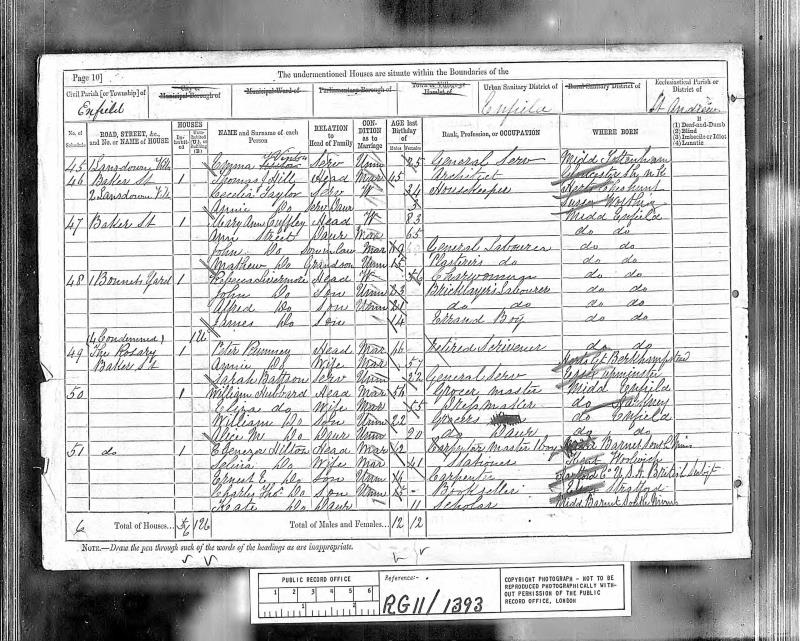 Page 10]
The undermentioned Houses are situate within the Boundaries of the
Civil Parish [or Township] of
Enfield
City or
Municipal Borough of
Municipal Ward of
Parliamentary Borough of
Town or Village or
Hamlet of
Urban Sanitary District of
Enfield
Rural Sanitary District of
Ecclesiastical Parish or
District of
St Andrew
No. of
Schedule
ROAD, STREET, &c.,
and No. or NAME of HOUSE
HOUSES
NAME and Surname of each
Person
RELATION
to
Head of Family
CON-
DITION
as to
Marriage
AGE last
Birthday
of
Males
Females
Rank, Profession, or OCCUPATION
WHERE BORN
If
(1) Deaf-and-Dumb
(2) Blind
(3) Imbecile or Idiot
(4) Lunatic
45 1 Lansdown Vils Emma Serv Unm 25 General Serv Midd Tottenham
46 Baker St 1 Thomas J Hill Head Mar 45 Architect
2 Lansdown Vils Cecelia Taylor Serv W 34 Housekeeper Herts Cheshunt
Annie Do 3 Sussex Worthing
47 Baker St 1 Mary Ann Cuffley Head W 83 Midd Enfield
Ann Street Daur Mar 65 do do
John Do Son in law Mar General Labourer do do
Mathew Do Grandson Unm 15 Plasterer's do do do
48 1 Bonnets Yard 1 Rebecca Livermore Head W 56 Charwoman do do
John Do Son Unm 23 Bricklayer's Labourer do do
Alfred Do Son Unm 21 do do do do
James Do Son 14 Errand Boy do do
(4 Condemned) 12u
49 The Rosary 1 Peter Head Mar 46 Retired Scrivener do do
Baker St Annie Do Wife Mar 57 Herts Gt Berkhampsted
Sarah Serv Unm 22 General Serv Essex Upminster
50 1 William Hubbard Head Mar 54 Grocer master Midd Enfield
Eliza do Wife Mar 55 Dressmaker do
William Do Son Unm 22 Grocers do Enfield
Alice M Do Daur Unm 20 do Daur do do
51 do 1 Ebenezer Hilton Head Mar 42 Carpenter Master 1 boy Barnet South Mims
Selina Do Wife Mar 41 Stationer Kent Woolwich
Ernest E Do Son Unm Carpenter U.S.A. British Subject
Charles Thos. Do Son Unm 15 Bookseller Stratford
Kate Do Daur 11 Scholar Midd Barnet South Mims
6 Total of Houses... 12u Total of Males and Females... 12 12
NOTE.—Draw the pen through such of the words of the headings as are inappropriate.
PUBLIC RECORD OFFICE
1 2 3 4 5 6
1 2
Reference:-
RG 11 / 1393
COPYRIGHT PHOTOGRAPH - NOT TO BE
REPRODUCED PHOTOGRAPHICALLY WITH-
OUT PERMISSION OF THE PUBLIC
RECORD OFFICE, LONDON